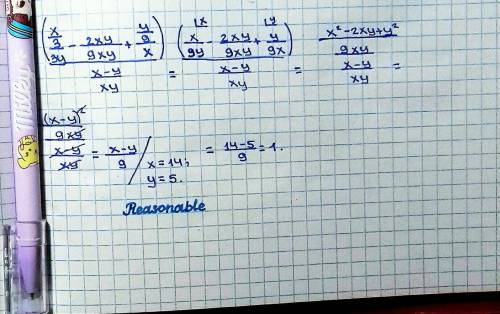 (x/3/3y - 2xy/9xy + y/9/x) / (x-y/xy) = (x/9y - 2xy/9xy + y/9x) / (x-y/xy) = (x²-2xy+y²/9xy) / (x-y/xy) =
((x-y)²/9xy) / (x-y/xy) = x-y/9 / x=14; y=5. = 14-5/9 = 1.
Reasonable